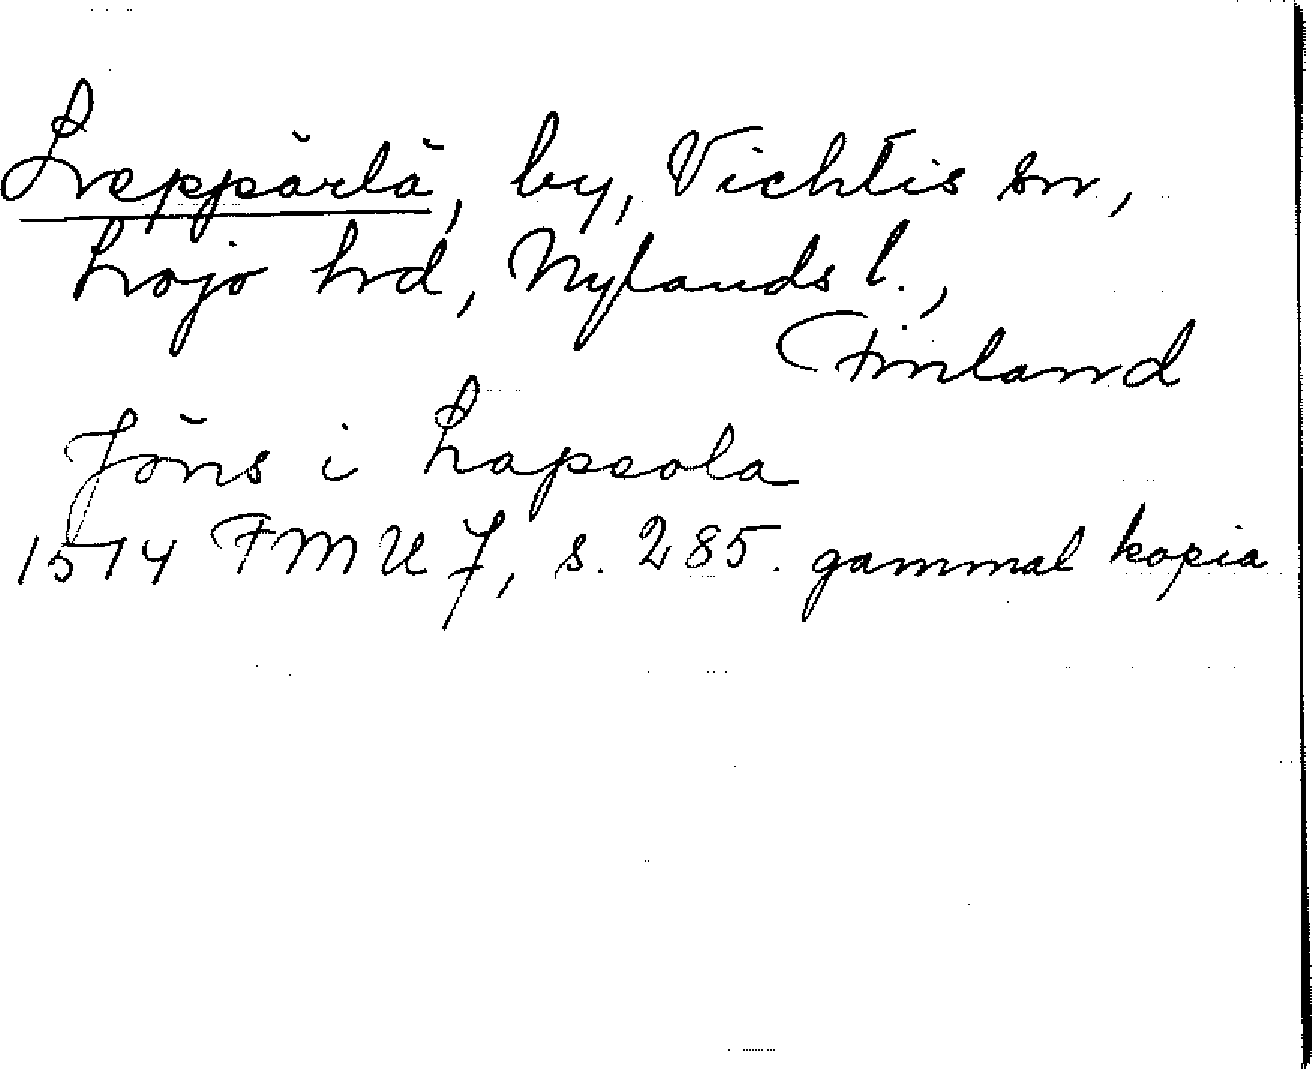 Leppärlä, by, Vichtis sn,
Lojo hrd, Nylands l.,
Finland
Jöns i Lapsola
1514 FMU 7, s. 285. gammal kopia